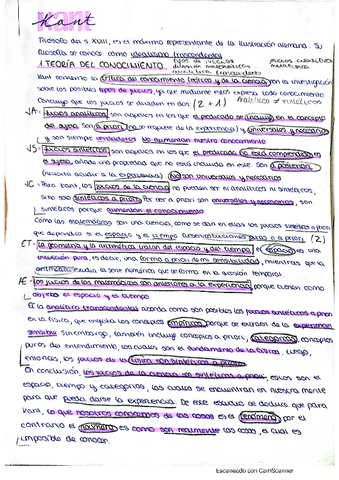 Kant
Filósofo del s. XVIII, es el máximo representante de la Ilustración alemana. Su
filosofía se conoce como idealismo trascendental
1 TEORÍA DEL CONOCIMIENTO tipos de juicios
Kant comienza la crítica del conocimiento teórico y de la ciencia con la investigación
sobre los posibles tipos de juicios, ya que mediante estos expresa todo conocimiento
Concluye que los juicios se dividen en dos (2+1) Analíticos ≠ sintéticos
JA= Juicios analíticos, son aquellos en los que el predicado se incluye en la concepto
de sujeto. Son a priori (no se requiere de la experiencia) y universales y necesarios
y son siempre verdaderos. No aumentan nuestro conocimiento
JS= Juicios sintéticos, aquellos en los que el predicado no está comprendido en
el sujeto, añade una propiedad que no está incluida en este. Son a posteriori
(necesita acudir a la experiencia) No son universales y necesarios
JC= Para Kant, los juicios de la ciencia no pueden ser ni analíticos ni sintéticos,
sino son sintéticos a priori. Por ser a priori son universales y necesarios, son
sintéticos porque aumentan el conocimiento.
Como las matemáticas son una ciencia, como se dan en ellas los juicios sintéticos a priori
que dependía si es espacio y el tiempo puros o a priori (2)
ET= La geometría y la aritmética tratan del espacio y del tiempo. El espacio es una
intuición pura, es decir, una forma a priori de mi sensibilidad, mientras que la
aritmética estudia la serie numérica que se forma en la sucesión temporal.
AE= Los juicios de las matemáticas son anteriores a la experiencia, porque tienen como
objeto el espacio y el tiempo.
En la analítica trascendental aborda como son posibles los juicios sintéticos a priori
en la física, que engloba los conceptos empíricos, porque se extraen de la experiencia
sensible. Sin embargo, también incluye conceptos a priori, categorías, conceptos
puros del entendimiento, los cuales son el fundamento de la física. Luego,
entonces, los juicios de la física son sintéticos a priori
En conclusión, los juicios de la ciencia son sintéticos a priori, estos son el
espacio, tiempo y categorías, los cuales se encuentran en nuestra mente
para que pueda darse la experiencia. De este estudio se deduce que para
Kant, lo que nosotros conocemos de las cosas es el fenómeno, por el
contrario el noúmeno es como son realmente las cosas, el cual es
imposible de conocer.
Escaneado con CamScanner